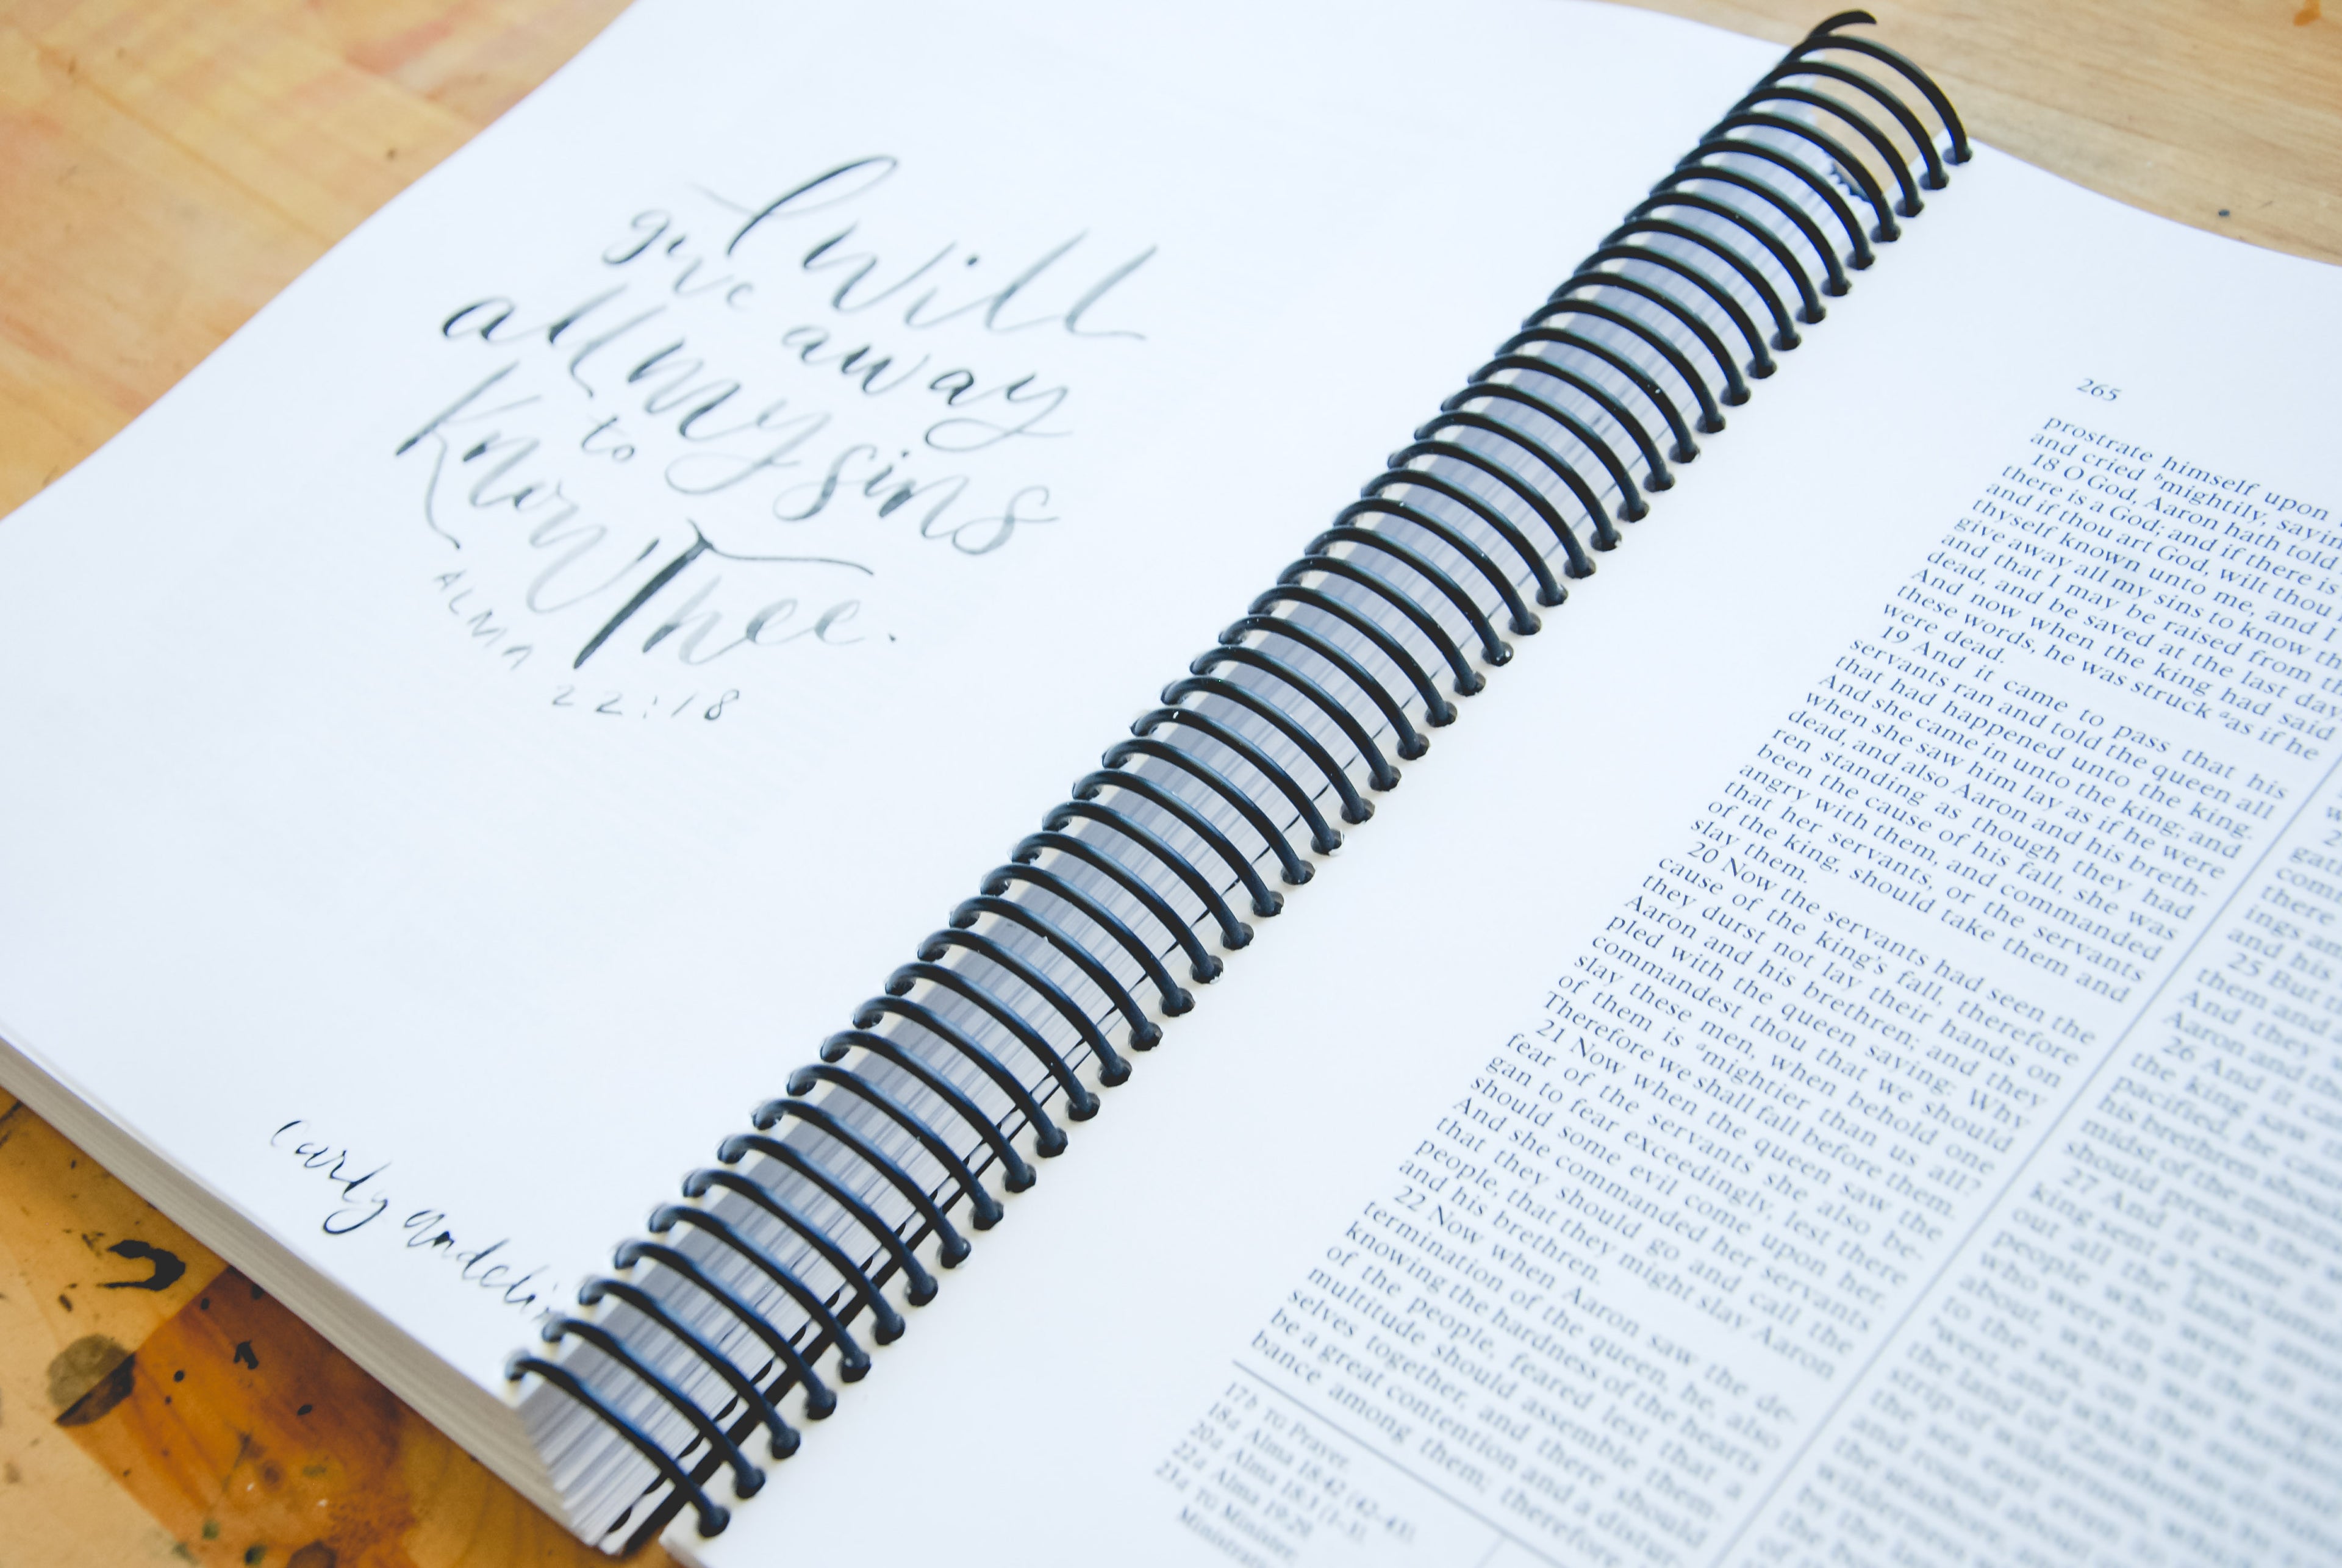 I will
give away
all my sins
to
know Thee.
ALMA 22:18
Carly Andelin
265
prostrate himself upon
and cried ᵇmightily,
18 O God, Aaron hath told
there is a God; and if there is
and if thou art God, wilt thou
thyself known unto me, and I
give away all my sins to know
and that I may be raised from
dead, and be saved at the last day.
And now when the king had said
these words, he was struck ᵃas if he
were dead.
19 And it came to pass that his
servants ran and told the queen all
that had happened unto the king.
And she came in unto the king; and
when she saw him lay as if he were
dead, and also Aaron and his breth-
ren standing as though they had
been the cause of his fall, she was
angry with them, and commanded
that her servants, or the servants
of the king, should take them and
slay them.
20 Now the servants had seen the
cause of the king's fall, therefore
they durst not lay their hands on
Aaron and his brethren; and they
pled with the queen saying: Why
commandest thou that we should
slay these men, when behold one
of them is ᵃmightier than us all?
Therefore we shall fall before them.
21 Now when the queen saw the
fear of the servants she also be-
gan to fear exceedingly, lest there
should some evil come upon her.
And she commanded her servants
that they should go and call the
people, that they might slay Aaron
and his brethren.
22 Now when Aaron saw the de-
termination of the queen, he, also
knowing the hardness of the hearts
of the people, feared lest that a
multitude should assemble them-
selves together, and there should
be a great contention and a distur-
bance among them; therefore
17b TG Prayer.
18a Alma 18:42 (42–43).
20a Alma 18:3 (1–3).
22a Alma 19:29.
23a TG Minister;
there
and his
25 But
them and
And they
Aaron and
26 And it
the king saw
pacified, he
his brethren should
midst of the
should preach the
27 And it came
king sent a ᵃproclamation
out all the land, amongst
people who were in all his
about, which was
to the sea, on the east and
ᵇwest, and which was
the land of Zarahemla
strip of wilderness
the sea east even
and round about
the seashore, and
by the
wilderness